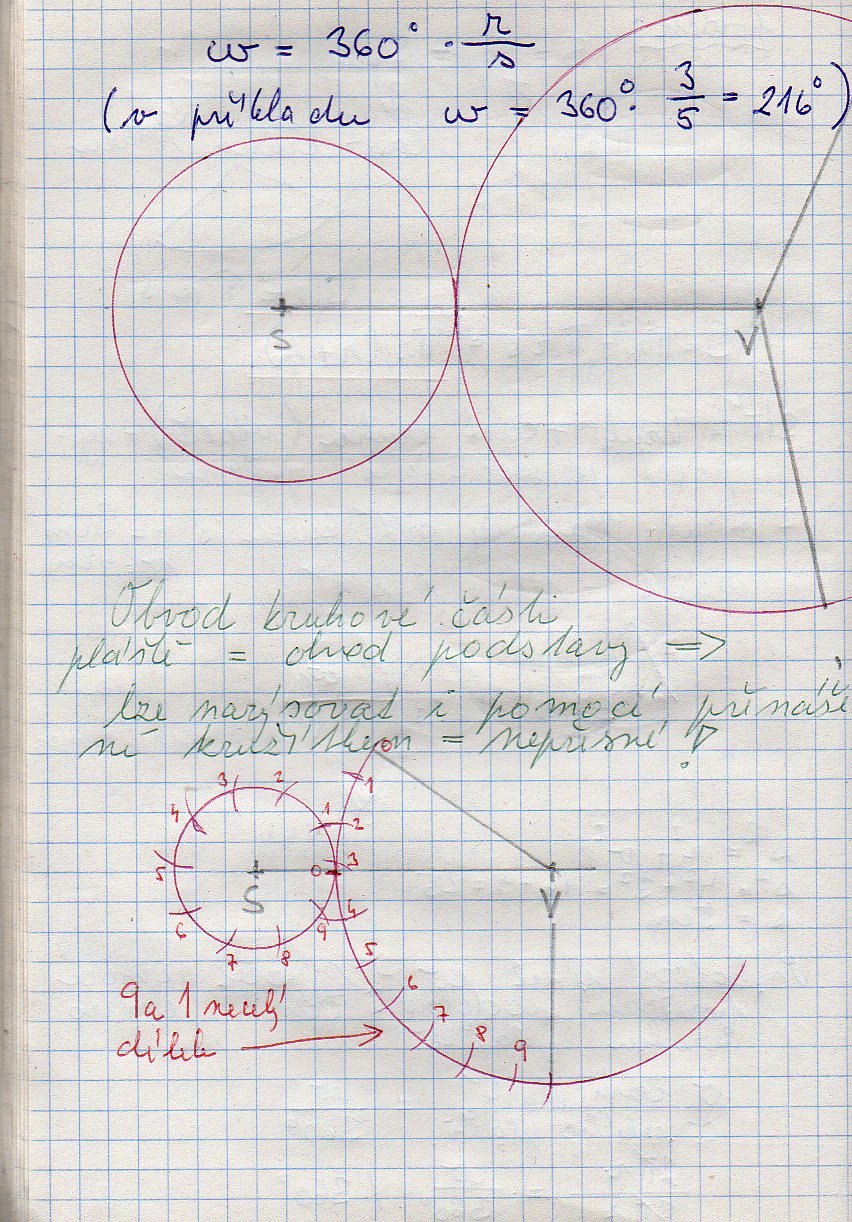 w = 360° · r/s
(v příkladu w = 360° · 3/5 = 216°)
S
V
Obvod kruhové části
pláště = obvod podstavy =>
lze narýsovat i pomocí přenáše
ní kružítkem = nepřesné !
0
3 2 1
4 1 2
5 0 3
S V
6 9 4
7 8 5
6
9 a 1 necelý 7
dílek 8
9